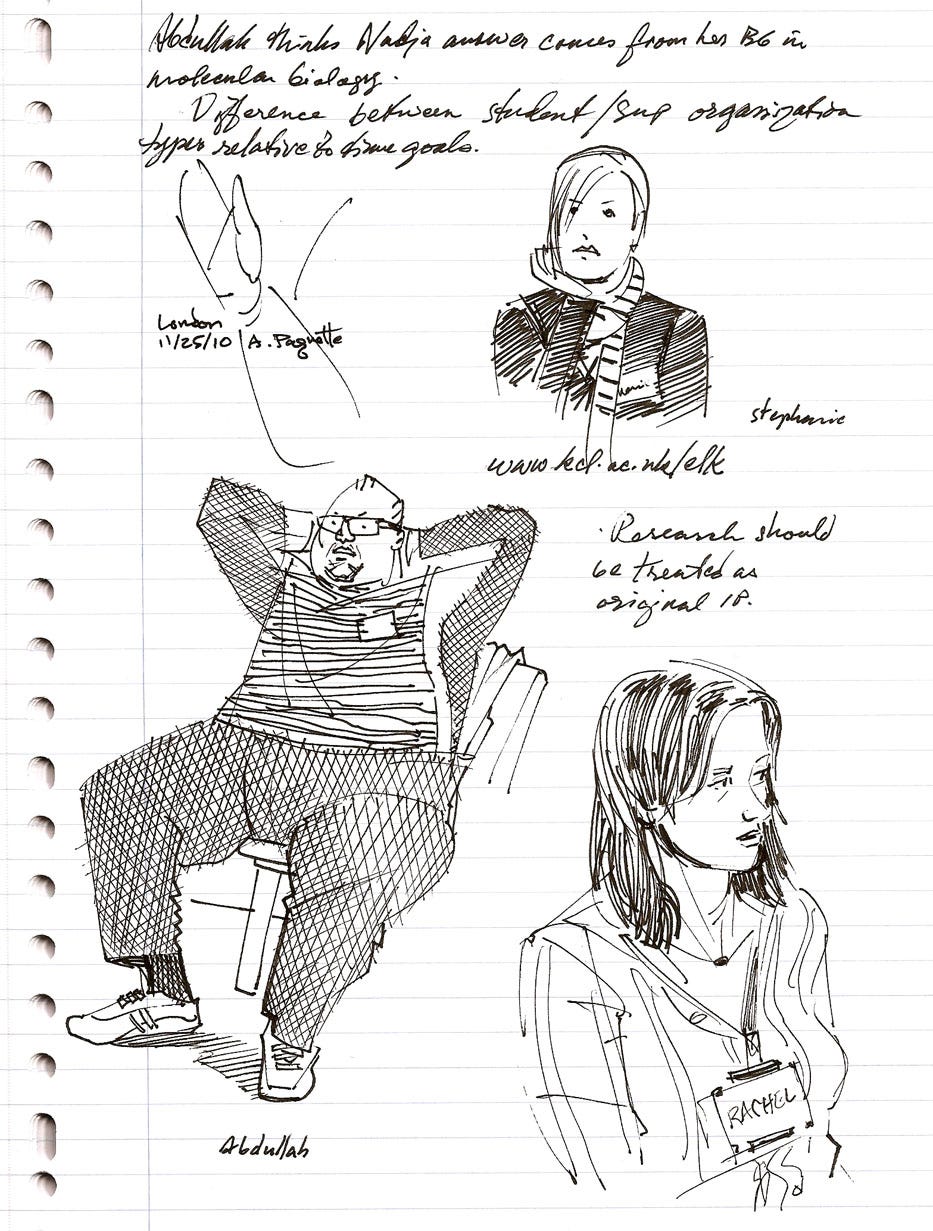 Abdullah thinks Nadja answer comes from her BG in
molecular biology.
Difference between student/sup organization
types relative to time goals.
London
11/25/10 A. Paquette
stephanie
www.kcl.ac.uk/elk
· Research should
be treated as
original IP.
RACHEL
Abdullah